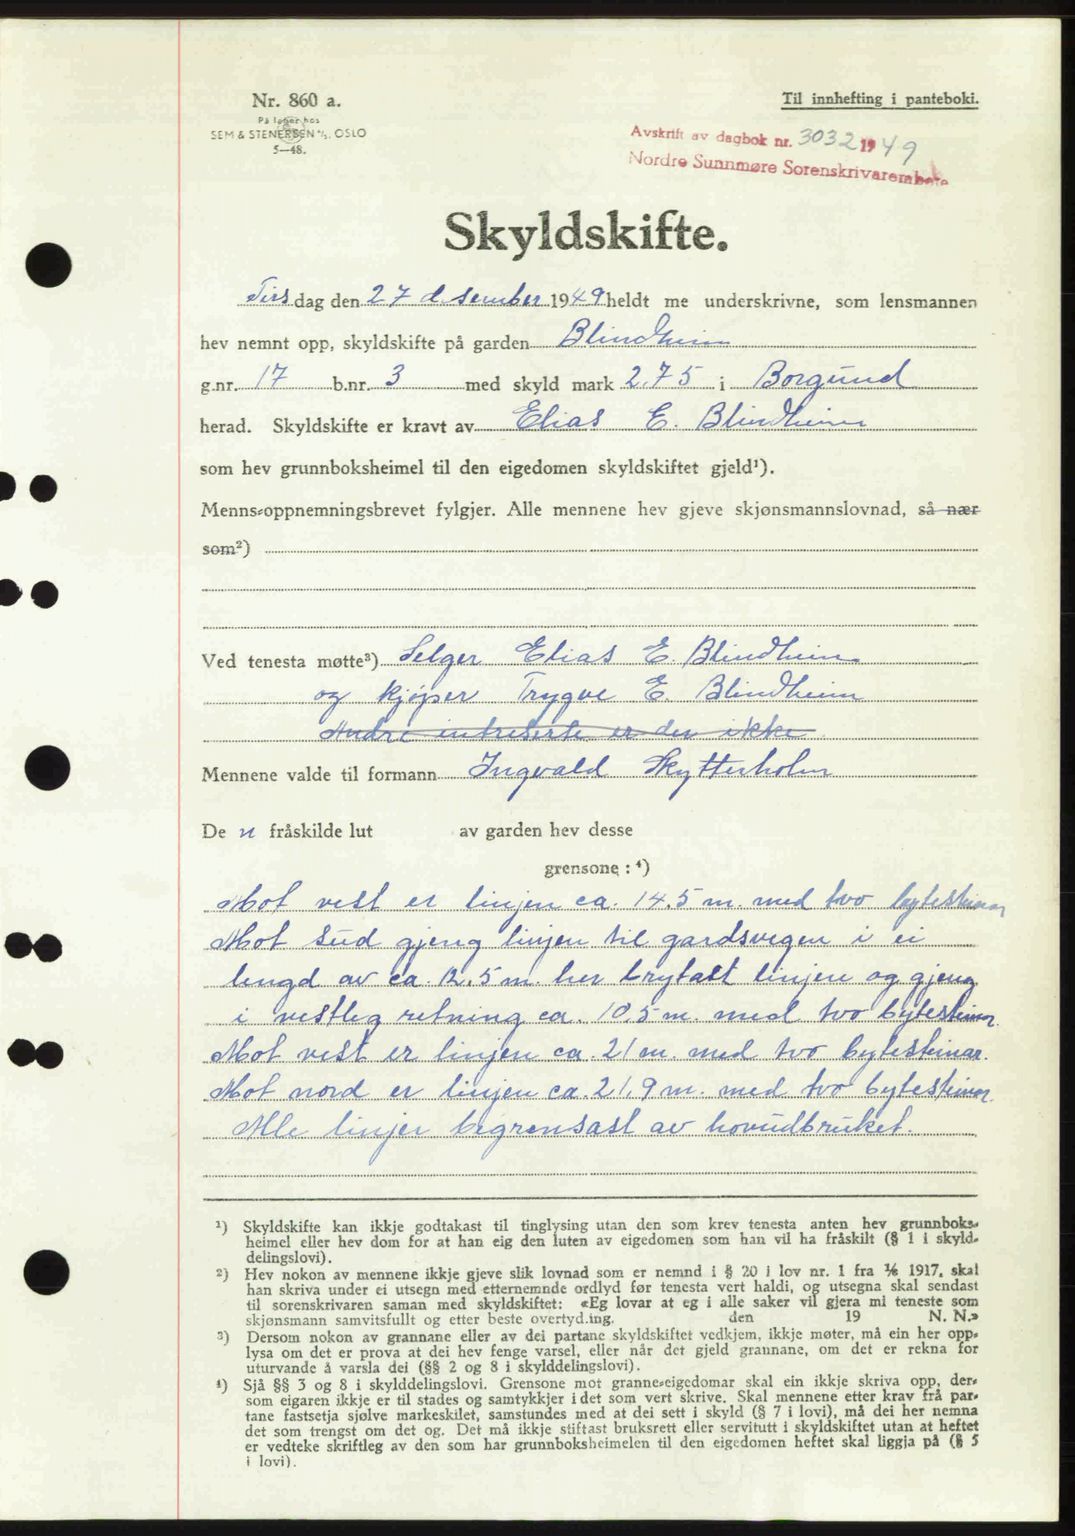 Nr. 860 a.
På lager hos
SEM & STENERSEN A/S, OSLO
5—48.
Til innhefting i panteboki.
Avskrift av dagbok nr. 3032 1949
Nordre Sunnmøre Sorenskrivarembete
Skyldskifte.
Tirsdag den 27 desember 1949 heldt me underskrivne, som lensmannen
hev nemnt opp, skyldskifte på garden Blindheim
g.nr. 17 b.nr. 3 med skyld mark 2.75 i Borgund
herad. Skyldskifte er kravt av Elias E. Blindheim
som hev grunnboksheimel til den eigedomen skyldskiftet gjeld¹).
Menns-oppnemningsbrevet fylgjer. Alle mennene hev gjeve skjønsmannslovnad, så nær
som²)
Ved tenesta møtte³) Selger Elias E. Blindheim
og kjøper Trygve E. Blindheim
Andre intreserte er der ikke
Mennene valde til formann Ingvald Skytterholm
De n fråskilde lut av garden hev desse
grensone: ⁴)
Mot vest er linjen ca. 14.5 m. med tvo bytesteinar
Mot Sud gjeng linjen til gardsvegen i ei
lengd av ca. 12.5 m. her brytast linjen og gjeng
i vestleg retning ca. 10.5 m. med tvo bytesteinar.
Mot vest er linjen ca. 21 m. med tvo bytesteinar.
Mot nord er linjen ca. 21.9 m. med tvo bytesteinar.
Alle linjer begrensast av hovudbruket.
¹) Skyldskifte kan ikkje godtakast til tinglysing utan den som krev tenesta anten hev grunnboks-
heimel eller hev dom for at han eig den luten av eigedomen som han vil ha fråskilt (§ 1 i skyld-
delingslovi).
²) Hev nokon av mennene ikkje gjeve slik lovnad som er nemnd i § 20 i lov nr. 1 fra 1/6 1917, skal
han skriva under ei utsegn med etternemnde ordlyd før tenesta vert haldi, og utsegna skal sendast
til sorenskrivaren saman med skyldskiftet: «Eg lovar at eg i alle saker vil gjera mi teneste som
skjønsmann samvitsfullt og etter beste overtyding. den 19 N. N.»
³) Dersom nokon av grannane eller av dei partane skyldskiftet vedkjem, ikkje møter, må ein her opp-
lysa om det er prova at dei hev fenge varsel, eller når det gjeld grannane, om det er rekna for
uturvande å varsla dei (§§ 2 og 8 i skylddelingslovi).
⁴) Sjå §§ 3 og 8 i skylddelingslovi. Grensone mot granne-eigedomar skal ein ikkje skriva opp, der-
som eigaren ikkje er til stades og samtykkjer i det som vert skrive. Skal mennene etter krav frå par-
tane fastsetja sjølve markeskilet, samstundes med at dei sett i skyld (§ 7 i lovi), må dei her nemna
det som trengst om det og. Det må ikkje stiftast bruksrett eller servitutt i skyldskiftet utan at heftet
er vedteke skriftleg av den som har grunnboksheimelen til den eigedomen heftet skal liggja på (§ 5
i lovi).